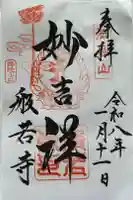 奉拝
令和八年
一月十一日
妙吉祥
般若寺